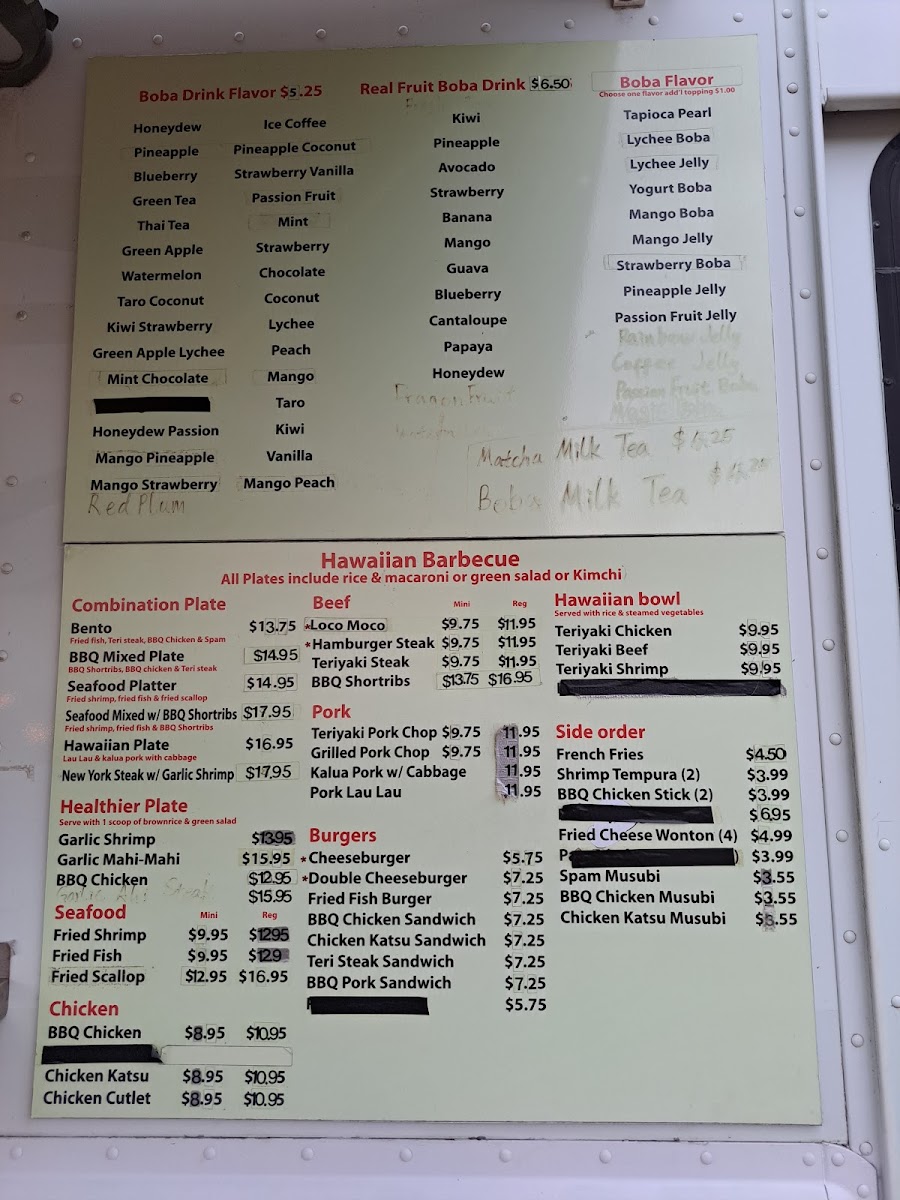 Boba Drink Flavor $5.25
Honeydew
Pineapple
Blueberry
Green Tea
Thai Tea
Green Apple
Watermelon
Taro Coconut
Kiwi Strawberry
Green Apple Lychee
Mint Chocolate
Honeydew Passion
Mango Pineapple
Mango Strawberry
Red Plum
Ice Coffee
Pineapple Coconut
Strawberry Vanilla
Passion Fruit
Mint
Strawberry
Chocolate
Coconut
Lychee
Peach
Mango
Taro
Kiwi
Vanilla
Mango Peach
Real Fruit Boba Drink $6.50
Kiwi
Pineapple
Avocado
Strawberry
Banana
Mango
Guava
Blueberry
Cantaloupe
Papaya
Honeydew
Dragon Fruit
Boba Flavor
Choose one flavor add'l topping $1.00
Tapioca Pearl
Lychee Boba
Lychee Jelly
Yogurt Boba
Mango Boba
Mango Jelly
Strawberry Boba
Pineapple Jelly
Passion Fruit Jelly
Rainbow Jelly
Coffee Jelly
Passion Fruit Boba
Matcha Milk Tea
Boba Milk Tea
Hawaiian Barbecue
All Plates include rice & macaroni or green salad or Kimchi
Combination Plate
Bento $13.75
Fried fish, Teri steak, BBQ Chicken & Spam
BBQ Mixed Plate $14.95
BBQ Shortribs, BBQ chicken & Teri steak
Seafood Platter $14.95
Fried shrimp, fried fish & fried scallop
Seafood Mixed w/ BBQ Shortribs $17.95
Fried shrimp, fried fish & BBQ Shortribs
Hawaiian Plate $16.95
Lau Lau & kalua pork with cabbage
New York Steak w/ Garlic Shrimp $17.95
Healthier Plate
Serve with 1 scoop of brownrice & green salad
Garlic Shrimp $13.95
Garlic Mahi-Mahi $15.95
BBQ Chicken $12.95
Garlic Ahi Steak $15.95
Seafood Mini Reg
Fried Shrimp $9.95 $12.95
Fried Fish $9.95 $12.9
Fried Scallop $12.95 $16.95
Chicken
BBQ Chicken $8.95 $10.95
Chicken Katsu $8.95 $10.95
Chicken Cutlet $8.95 $10.95
Beef Mini Reg
*Loco Moco $9.75 $11.95
*Hamburger Steak $9.75 $11.95
Teriyaki Steak $9.75 $11.95
BBQ Shortribs $13.75 $16.95
Pork
Teriyaki Pork Chop $9.75 11.95
Grilled Pork Chop $9.75 11.95
Kalua Pork w/ Cabbage 11.95
Pork Lau Lau 11.95
Burgers
*Cheeseburger $5.75
*Double Cheeseburger $7.25
Fried Fish Burger $7.25
BBQ Chicken Sandwich $7.25
Chicken Katsu Sandwich $7.25
Teri Steak Sandwich $7.25
BBQ Pork Sandwich $7.25
$5.75
Hawaiian bowl
Served with rice & steamed vegetables
Teriyaki Chicken $9.95
Teriyaki Beef $9.95
Teriyaki Shrimp $9.95
Side order
French Fries $4.50
Shrimp Tempura (2) $3.99
BBQ Chicken Stick (2) $3.99
$6.95
Fried Cheese Wonton (4) $4.99
$3.99
Spam Musubi $3.55
BBQ Chicken Musubi $3.55
Chicken Katsu Musubi $3.55